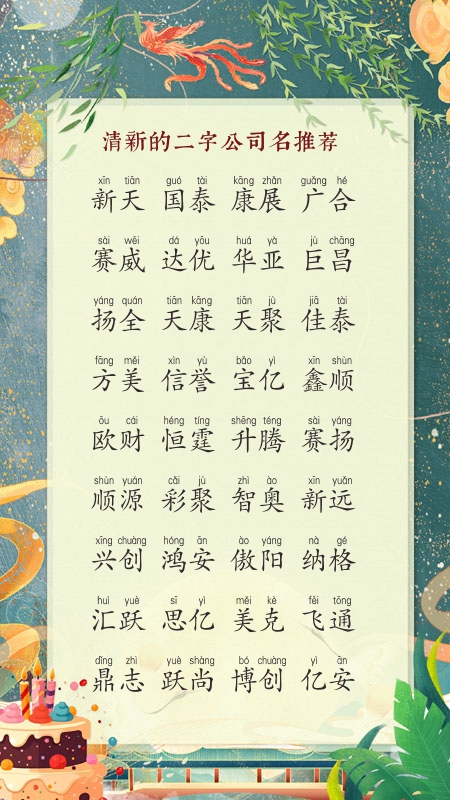 清新的二字公司名推荐
xīn tiān guó tài kāng zhǎn guǎng hé
新天 国泰 康展 广合
sài wēi dá yōu huá yà jù chāng
赛威 达优 华亚 巨昌
yáng quán tiān kāng tiān jù jiā tài
扬全 天康 天聚 佳泰
fāng měi xìn yù bǎo yì xīn shùn
方美 信誉 宝亿 鑫顺
ōu cái héng tíng shēng téng sài yáng
欧财 恒霆 升腾 赛扬
shùn yuán cǎi jù zhì ào xīn yuǎn
顺源 彩聚 智奥 新远
xīng chuàng hóng ān ào yáng nà gé
兴创 鸿安 傲阳 纳格
huì yuè sī yì měi kè fēi tōng
汇跃 思亿 美克 飞通
dǐng zhì yuè shàng bó chuàng yì ān
鼎志 跃尚 博创 亿安